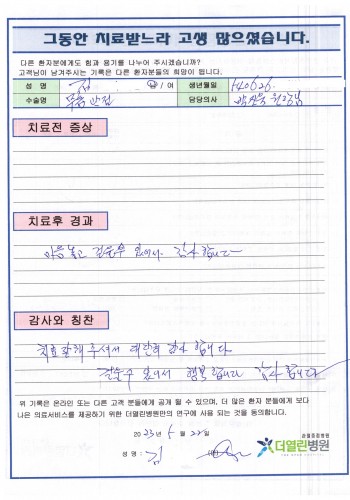 그동안 치료받느라 고생 많으셨습니다.
다른 환자분에게도 힘과 용기를 나누어 주시겠습니까?
고객님이 남겨주시는 기록은 다른 환자분들의 희망이 됩니다.
성 명 김 남 / 여 생년월일 540626
수술명 무릎 담당의사 원장님
치료전 증상
치료후 경과
마음놓고 걸을수 있어서 감사합니다
감사와 칭찬
치료 잘해 주셔서 대단히 감사 합니다
걸을수 있어서 행복합니다 감사합니다
위 기록은 온라인 또는 다른 고객 분들에게 공개 될 수 있으며, 더 많은 환자 분들에게 보다
나은 의료서비스를 제공하기 위한 더열린병원만의 연구에 사용 되는 것을 동의합니다.
2023년 5월 22일
성 명 : 김
더열린병원